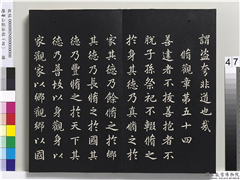 謂盜夸非道也哉
脩觀章第五十四
善建者不拔善抱者不
脫子孫祭祀不輟脩之
於身其德乃真脩之於
家其德乃餘脩之於鄉
其德乃長脩之於國其
德乃豐脩之於天下其
德乃普故以身觀身以
家觀家以鄉觀鄉以國
47